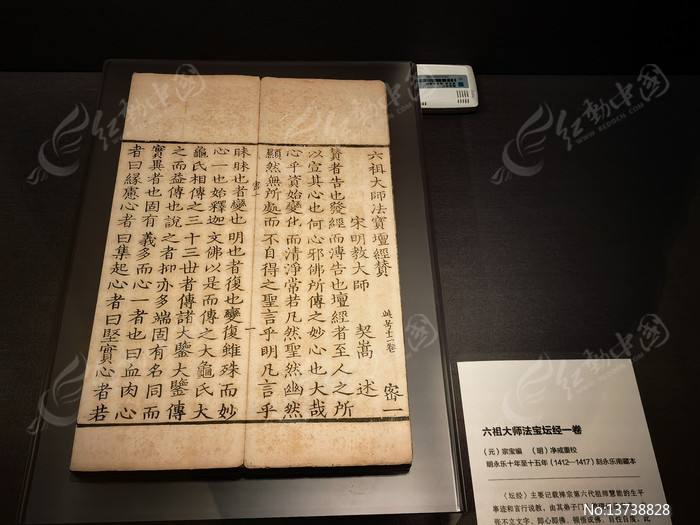 六祖大師法寶壇經贊 密一
宋明教大師 契嵩 述
贊者告也發經而溥告也壇經者至人之所
以宣其心也何心邪佛所傳之妙心也大哉
心乎資始變化而清淨常若凡然聖然幽然
顯然無所處而不自得之聖言乎明凡言乎
昧昧也者變也明也者復也變復雖殊而妙
心一也始釋迦文佛以是而傳之大龜氏大
龜氏相傳之三十三世者傳諸大鑒大鑒傳
之而益傳也說之者抑亦多端固有名同而
實異者也固有義多而心一者也曰血肉心
者曰緣慮心者曰集起心者曰堅實心者若
六祖大师法宝坛经一卷
（元）宗宝编 （明）净戒重校
明永乐十年至十五年（1412—1417）刻永乐南藏本
《坛经》主要记载禅宗第六代祖师慧能的生平
事迹和言行说教，由其弟子
张不立文字、
红动中国
WWW.REDOCN.COM
No:13738828